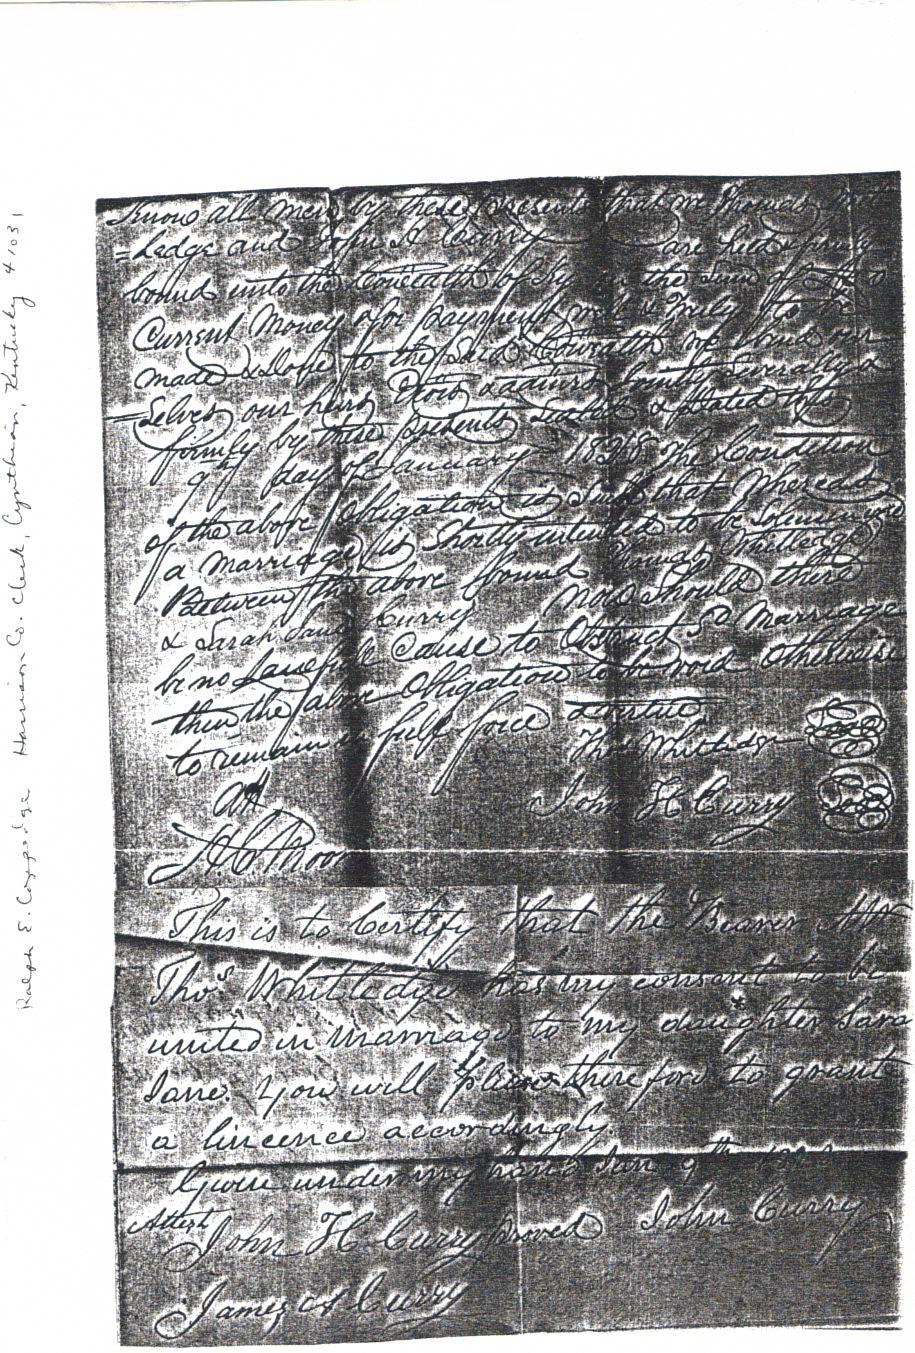 Know all men by these presents that we Thomas Whit
=ledge and John H Curry are held & firmly
bound unto the Comwealth of Ky in the sum of £50
Current Money for payment well & Truly to be
made & done to the said Comwealth we bind our
=Selves our heirs &c jointly severally &
firmly by these presents Sealed & dated this
9th day of January 1838 The Condition
of the above Obligation is Such that Whereas
a marriage is Shortly intended to be Solemnized
Between the above bound Thomas Whitledge
& Sarah Jane Curry now Should there
be no Lawfull Cause to Obstruct sd marriage
then the above Obligation to be void otherwise
to remain in full force & virtue
Thos Whitledge Seal
John H Curry Seal
Att
This is to Certify that the Bearer
Thos Whittledge has my consent to be
united in Marriage to my daughter Sara
Jane. You will please therefore to grant
a lincence accordingly
Given under my hand Jan 9th
Attest
John H Curry proved John Curry
James A Curry
Ralph E. Coppedge Harrison Co. Clerk, Cynthiana, Kentucky 41031